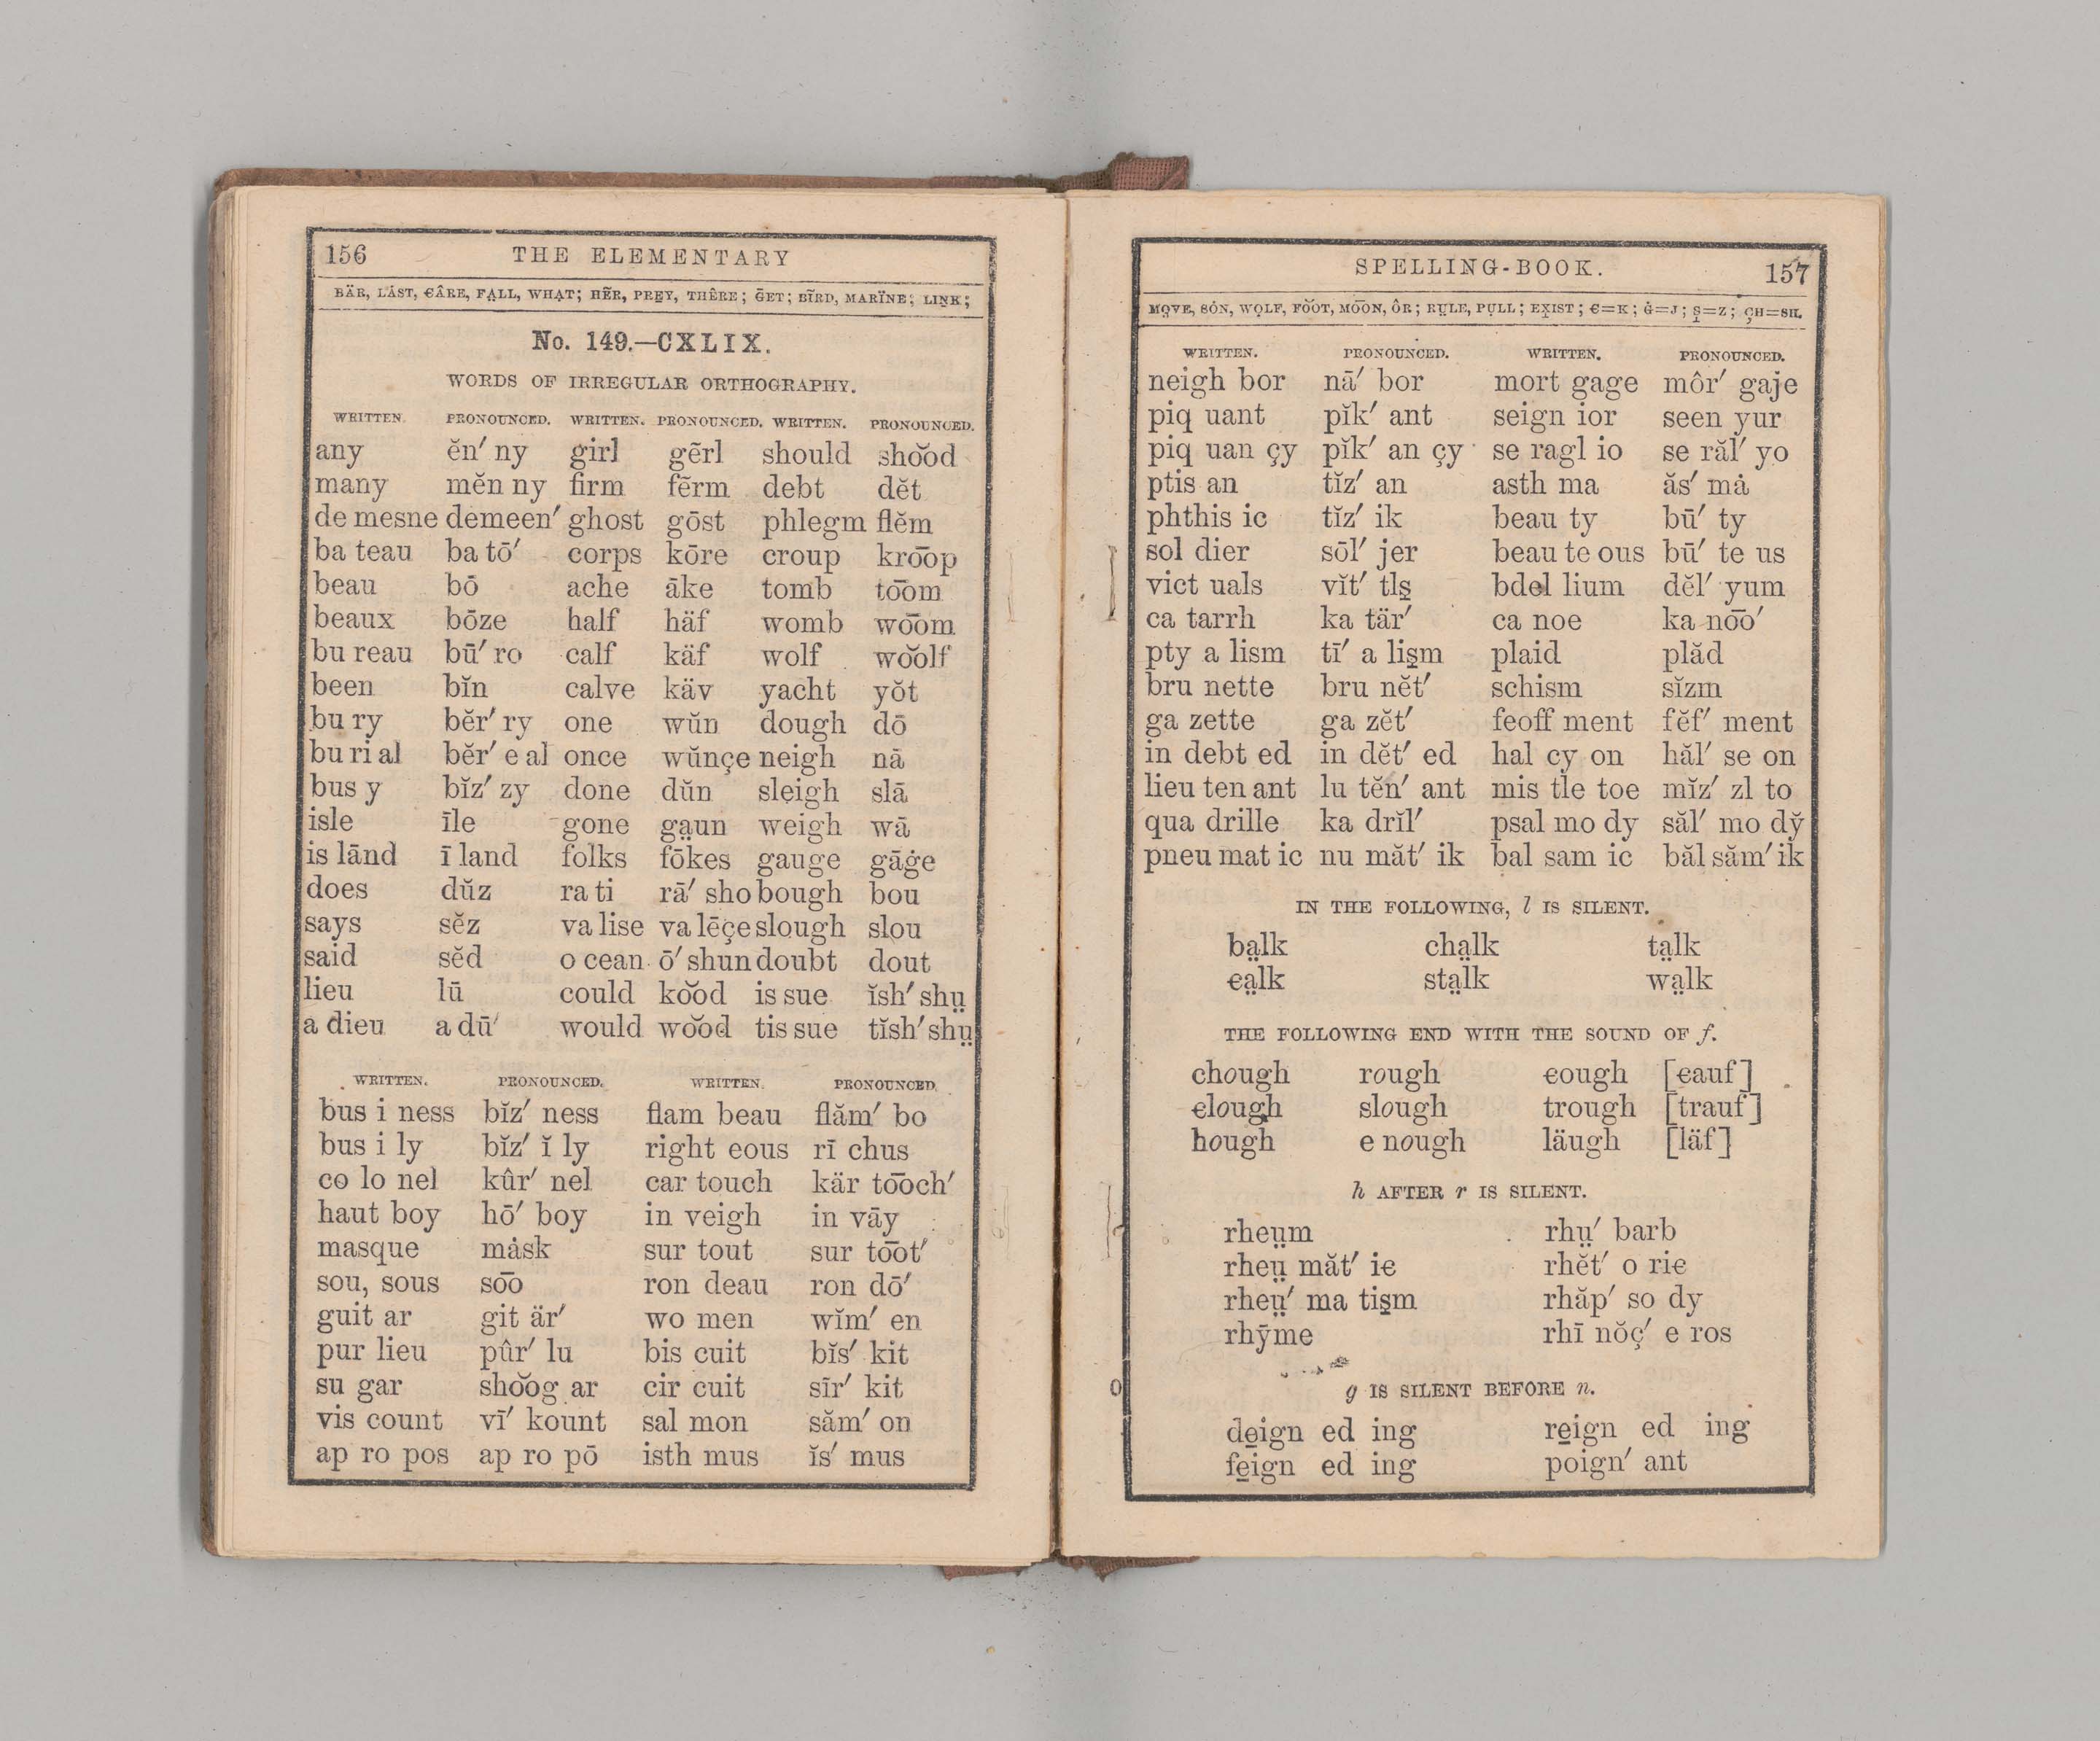 156 THE ELEMENTARY
BÄR, LȦST, ЄÂRE, FA̤LL, WHA̤T; HẼR, PRE̱Y, THÊRE; G̅ET; BĨRD, MARÏNE; LIN̲K;
No. 149.—CXLIX.
WORDS OF IRREGULAR ORTHOGRAPHY.
WRITTEN. PRONOUNCED. WRITTEN. PRONOUNCED. WRITTEN. PRONOUNCED.
any ĕn′ ny girl gẽrl should sho͝od
many mĕn ny firm fẽrm debt dĕt
de mesne demeen′ ghost gōst phlegm flĕm
ba teau ba tō′ corps kōre croup kro͞op
beau bō ache āke tomb to͞om
beaux bōze half häf womb wo͞om
bu reau bū′ ro calf käf wolf wo͝olf
been bĭn calve käv yacht yŏt
bu ry bĕr′ ry one wŭn dough dō
bu ri al bĕr′ e al once wŭnçe neigh nā
bus y bĭz′ zy done dŭn sleigh slā
isle īle gone ga̤un weigh wā
is lānd ī land folks fōkes gauge gāġe
does dŭz ra ti rā′ sho bough bou
says sĕz va lise va lēçe slough slou
said sĕd o cean ō′ shun doubt dout
lieu lū could ko͝od is sue ĭsh′ shṳ
a dieu a dū′ would wo͝od tis sue tĭsh′ shṳ
WRITTEN. PRONOUNCED. WRITTEN. PRONOUNCED.
bus i ness bĭz′ ness flam beau flăm′ bo
bus i ly bĭz′ ĭ ly right eous rī chus
co lo nel kûr′ nel car touch kär to͞och′
haut boy hō′ boy in veigh in vāy
masque mȧsk sur tout sur to͞ot′
sou, sous so͞o ron deau ron dō′
guit ar git är′ wo men wĭm′ en
pur lieu pûr′ lu bis cuit bĭs′ kit
su gar sho͝og ar cir cuit sīr′ kit
vis count vī′ kount sal mon săm′ on
ap ro pos ap ro pō isth mus ĭs′ mus
SPELLING-BOOK. 157
MO̤VE, SȮN, WO̤LF, FO͝OT, MO͞ON, ÔR; RṲLE, PṲLL; EX̱IST; Є=K; Ġ=J; S̱=Z; ÇH=SH.
WRITTEN. PRONOUNCED. WRITTEN. PRONOUNCED.
neigh bor nā′ bor mort gage môr′ gaje
piq uant pĭk′ ant seign ior seen yur
piq uan çy pĭk′ an çy se ragl io se răl′ yo
ptis an tĭz′ an asth ma ăs′ mȧ
phthis ic tĭz′ ik beau ty bū′ ty
sol dier sōl′ jer beau te ous bū′ te us
vict uals vĭt′ tls̱ bdel lium dĕl′ yum
ca tarrh ka tär′ ca noe ka no͞o′
pty a lism tī′ a lis̱m plaid plăd
bru nette bru nĕt′ schism sĭzm
ga zette ga zĕt′ feoff ment fĕf′ ment
in debt ed in dĕt′ ed hal cy on hăl′ se on
lieu ten ant lu tĕn′ ant mis tle toe mĭz′ zl to
qua drille ka drĭl′ psal mo dy săl′ mo dy̆
pneu mat ic nu măt′ ik bal sam ic băl săm′ ik
IN THE FOLLOWING, l IS SILENT.
ba̤lk cha̤lk ta̤lk
єa̤lk sta̤lk wa̤lk
THE FOLLOWING END WITH THE SOUND OF f.
chough rough єough [єauf]
єlough slough trough [trauf]
hough e nough läugh [läf]
h AFTER r IS SILENT.
rheṳm rhṳ′ barb
rheṳ măt′ iє rhĕt′ o riє
rheṳ′ ma tis̱m rhăp′ so dy
rhȳme rhī nŏç′ e ros
g IS SILENT BEFORE n.
de̱ign ed ing re̱ign ed ing
fe̱ign ed ing poign′ ant